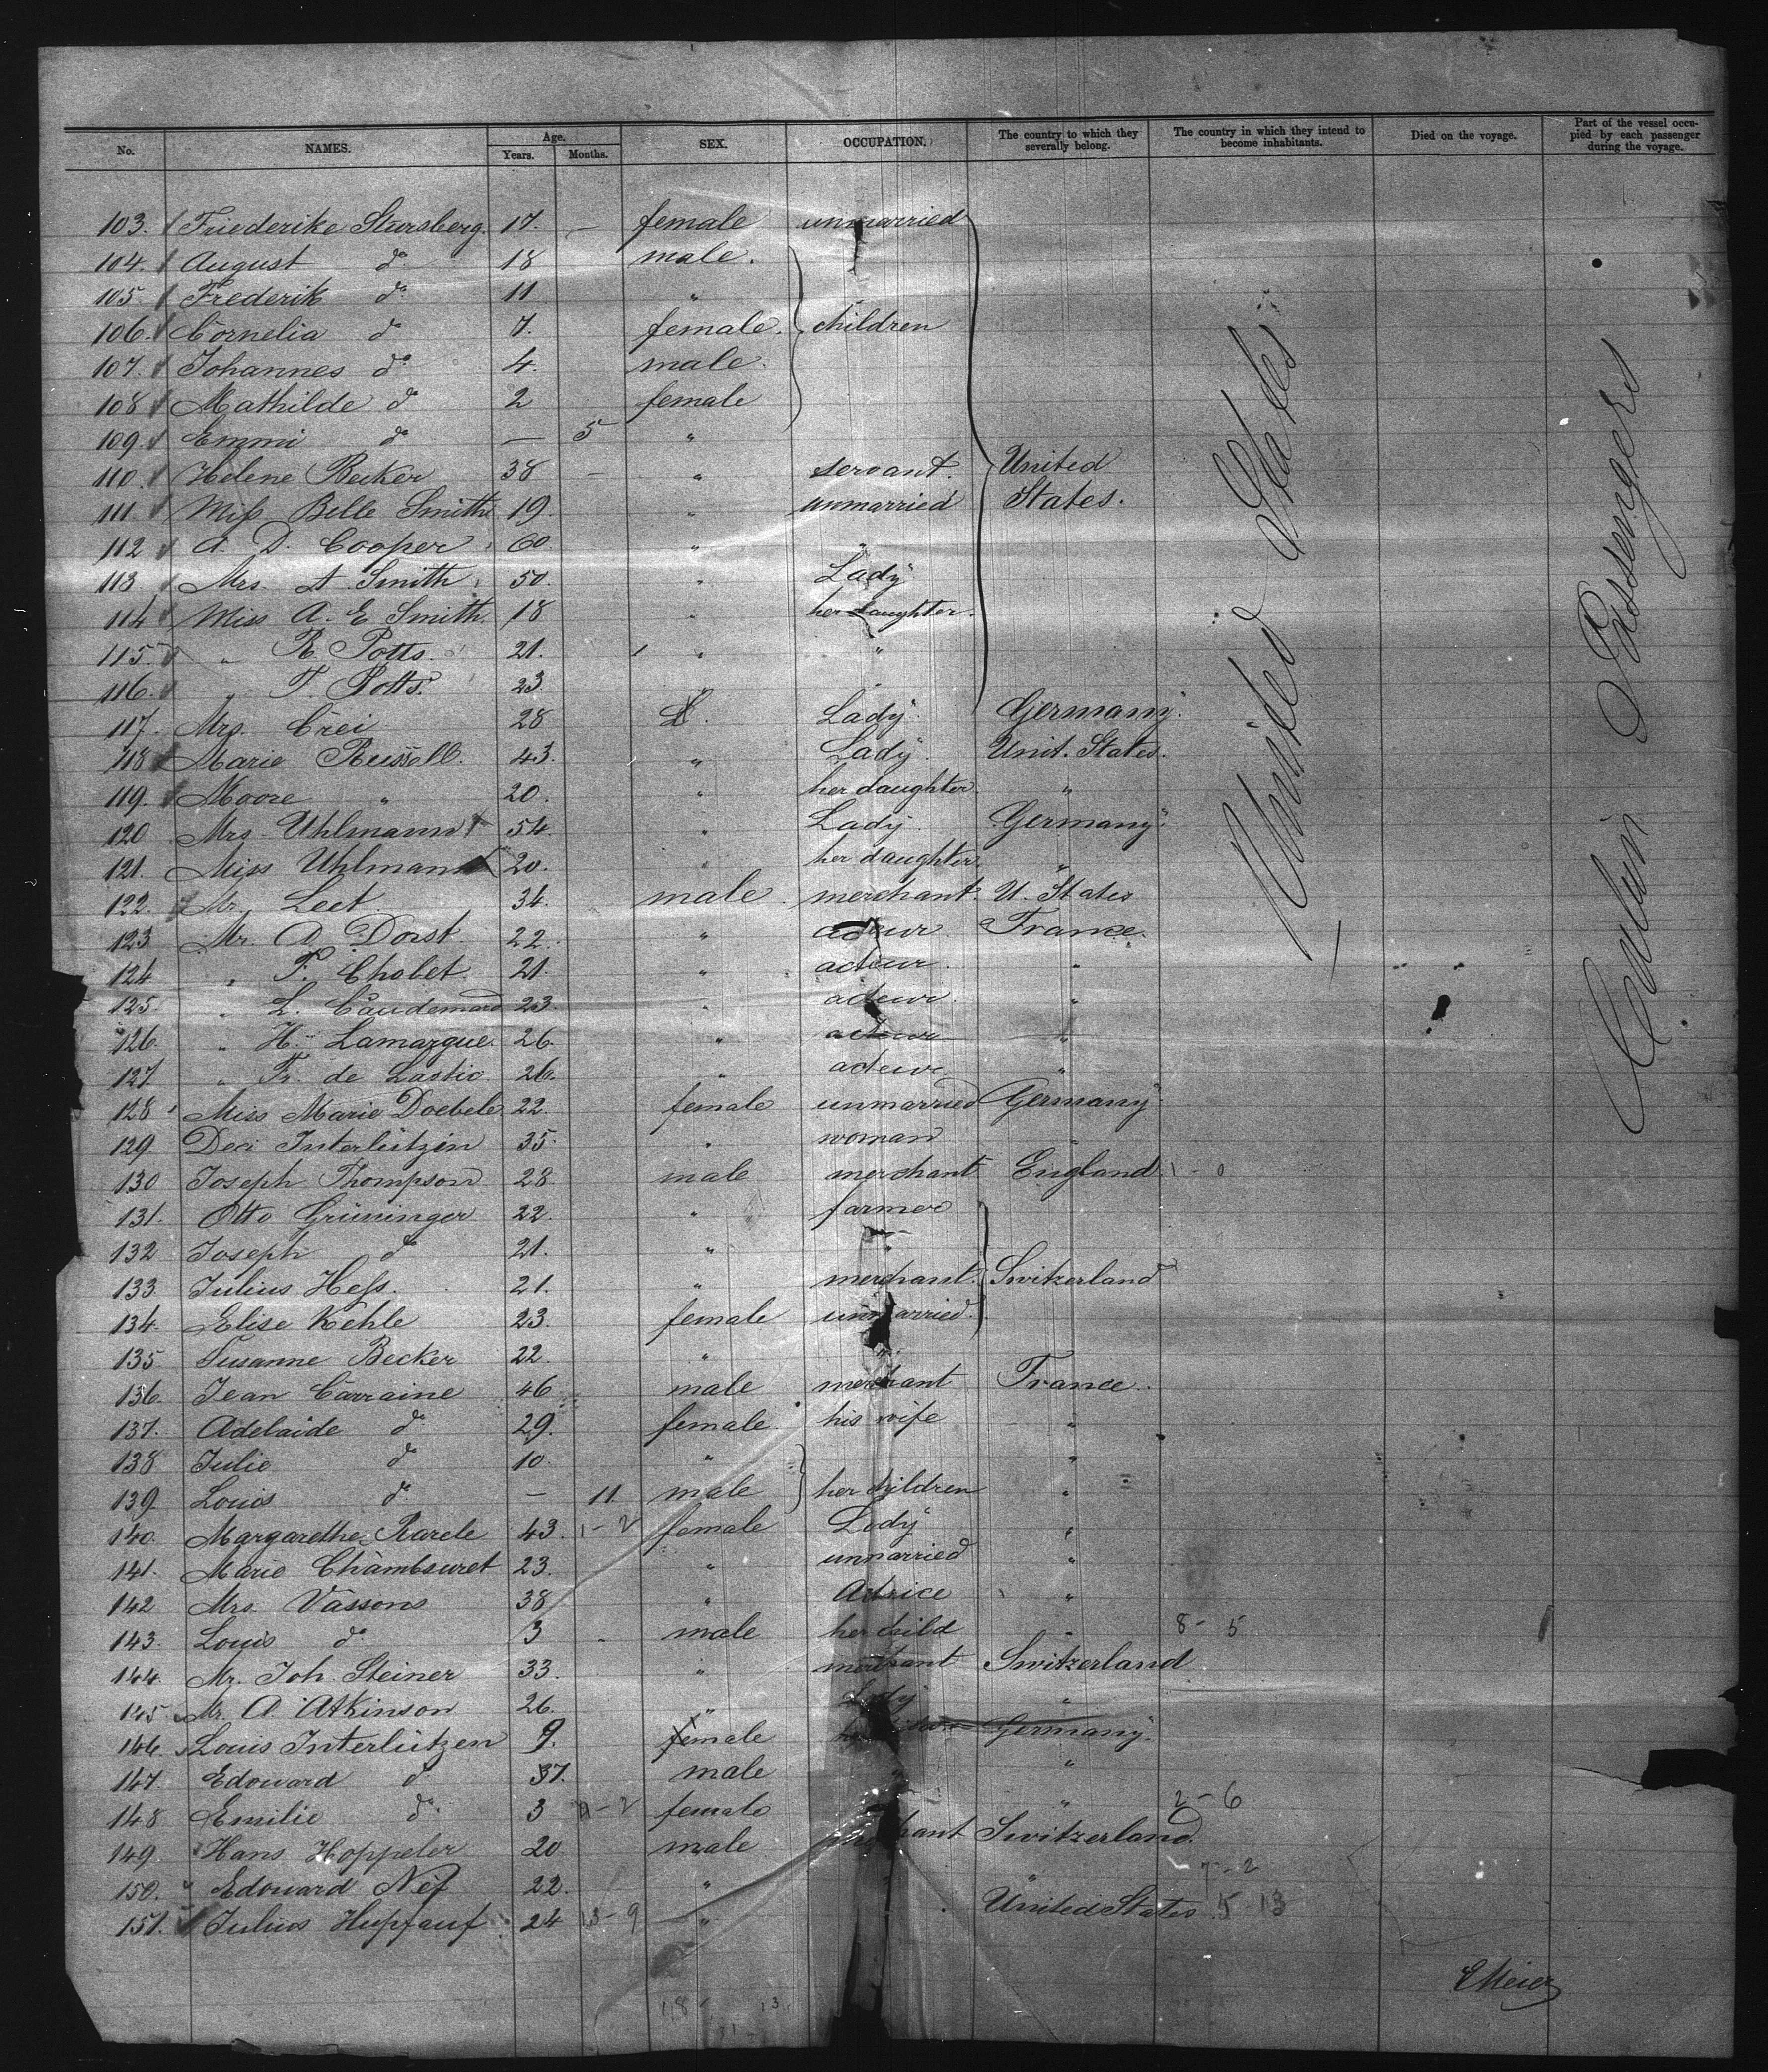 No. NAMES. Age. Years. Months. SEX. OCCUPATION. The country to which they severally belong. The country in which they intend to become inhabitants. Died on the voyage. Part of the vessel occupied by each passenger during the voyage.
103. Friederike Stursberg. 17. — female unmarried
104. August do 18 male.
105. Frederik do 11 "
106. Cornelia do 7. female. children
107. Johannes do 4. male.
108 Mathilde do 2 female
109. Emmi do — 5 "
110. Helene Becker 38 — " servant. United
111. Miss Belle Smith 19. " unmarried States.
112 A. D. Cooper 60. " "
113. Mrs. A. Smith 50. " Lady
114 Miss A. E Smith. 18 " her daughter.
115. " R. Potts. 21. " "
116. " F. Potts. 23 " "
117. Mrs. Crei 28 Lady. Germany.
118 Marie Russell. 43. " Lady. Unit. States.
119. Moore " 20. " her daughter "
120 Mrs. Uhlmann 54. " Lady. Germany.
121. Miss Uhlmann 20. " her daughter. "
122. Mr. Leet 34. male. merchant. U. States
123 Mr. A. Dorst. 22. " acteur France.
124 " F. Chobet 21. " acteur. "
125. " L. 23. " acteur. "
126. " H. Lamargue. 26. " acteur "
127 " Fr. de Lastic 26. " acteur. "
128 Miss Marie Doebele 22. female unmarried Germany.
129. Interlützin 35. " woman "
130 Joseph Thompson 28. male merchant England 1 - 0
131. Otto Grüninger 22. " farmer
132 Joseph do 21. " "
133. Julius Hess. 21. " merchant. Switzerland
134. Elise Kehle 23. female unmarried.
135 Susanne Becker 22. " "
136. Jean Carraine 46 male merchant France.
137. Adelaide do 29. female. his wife "
138 Julie do 10. " "
139. Louis do — 11 male her children "
140. Margarethe 43. 1 - 2 female Lady "
141. Marie Chambsuret 23. " unmarried "
142 Mrs. Vassons 38 " Actrice "
143. Louis do 3 male her child " 8 - 5
144. Mr. Joh. Steiner 33. " merchant Switzerland
145 Mr. A. Atkinson 26. " Lady "
146. Louis Interlützen 9. male Germany.
147. Edouard do 37. male "
148 Emilie do 3 female " 2 - 6
149. Hans Hoppeler 20 male merchant Switzerland.
150. " Edouard Nef 22. " " 7 - 2
151. Julius Hupfauf 24 13 - 9 " United States 5 13
United States
Cabin Passengers
EMeier
18 - 13